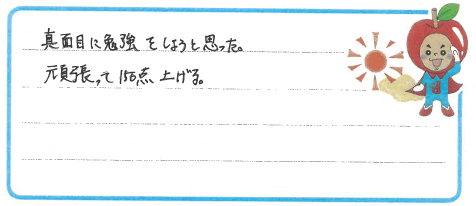 真面目に勉強をしようと思った。
頑張って150点上げる。